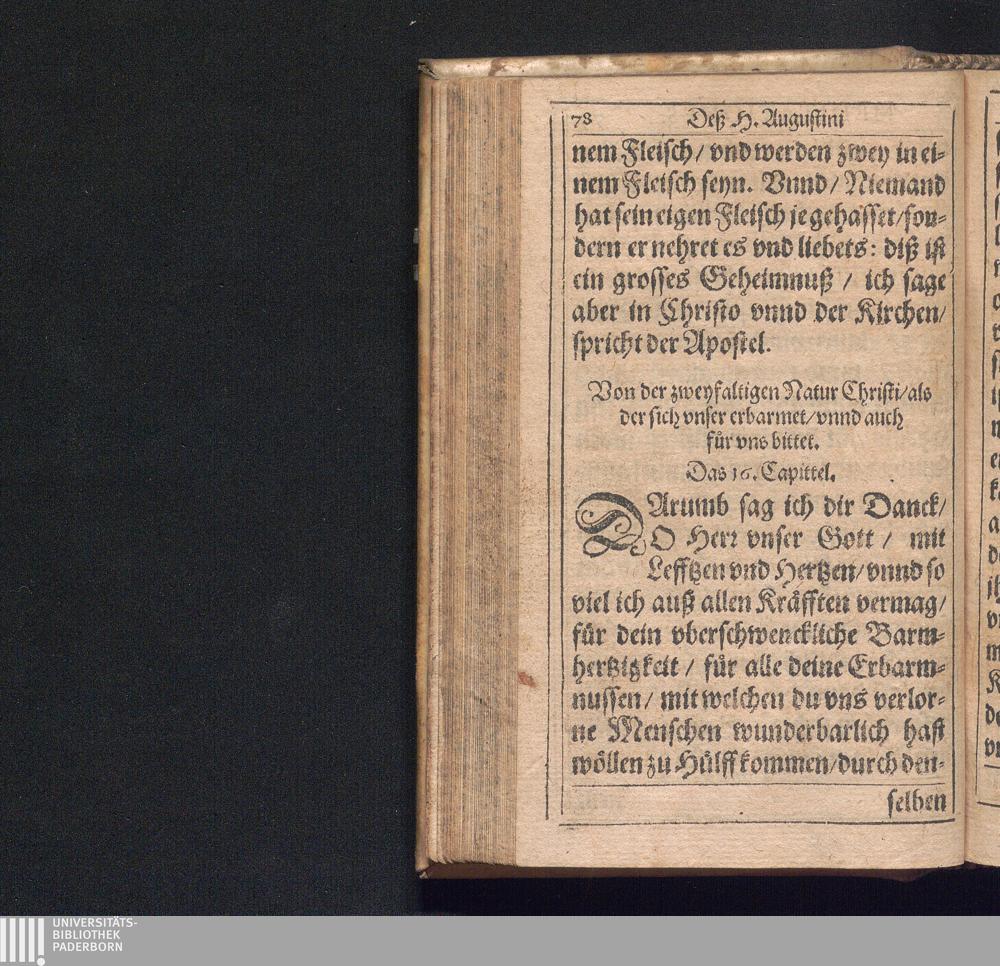 78 Deß H. Augustini
nem Fleisch/ vnd werden zwey in ei-
nem Fleisch seyn. Vnnd/ Niemand
hat sein eigen Fleisch je gehasset/son-
dern er nehret es vnd liebets: diß ist
ein grosses Geheimnuß / ich sage
aber in Christo vnnd der Kirchen/
spricht der Apostel.
Von der zweyfaltigen Natur Christi/als
der sich vnser erbarmet/vnnd auch
für vns bittet.
Das 16. Capittel.
DArumb sag ich dir Danck/
O Herr vnser Gott / mit
Lefftzen vnd Hertzen/vnnd so
viel ich auß allen Kräfften vermag/
für dein vberschwenckliche Barm-
hertzigkeit / für alle deine Erbarm-
nussen/ mit welchen du vns verlor-
ne Menschen wunderbarlich hast
wöllen zu Hülff kommen/durch den-
selben
UNIVERSITÄTS-
BIBLIOTHEK
PADERBORN